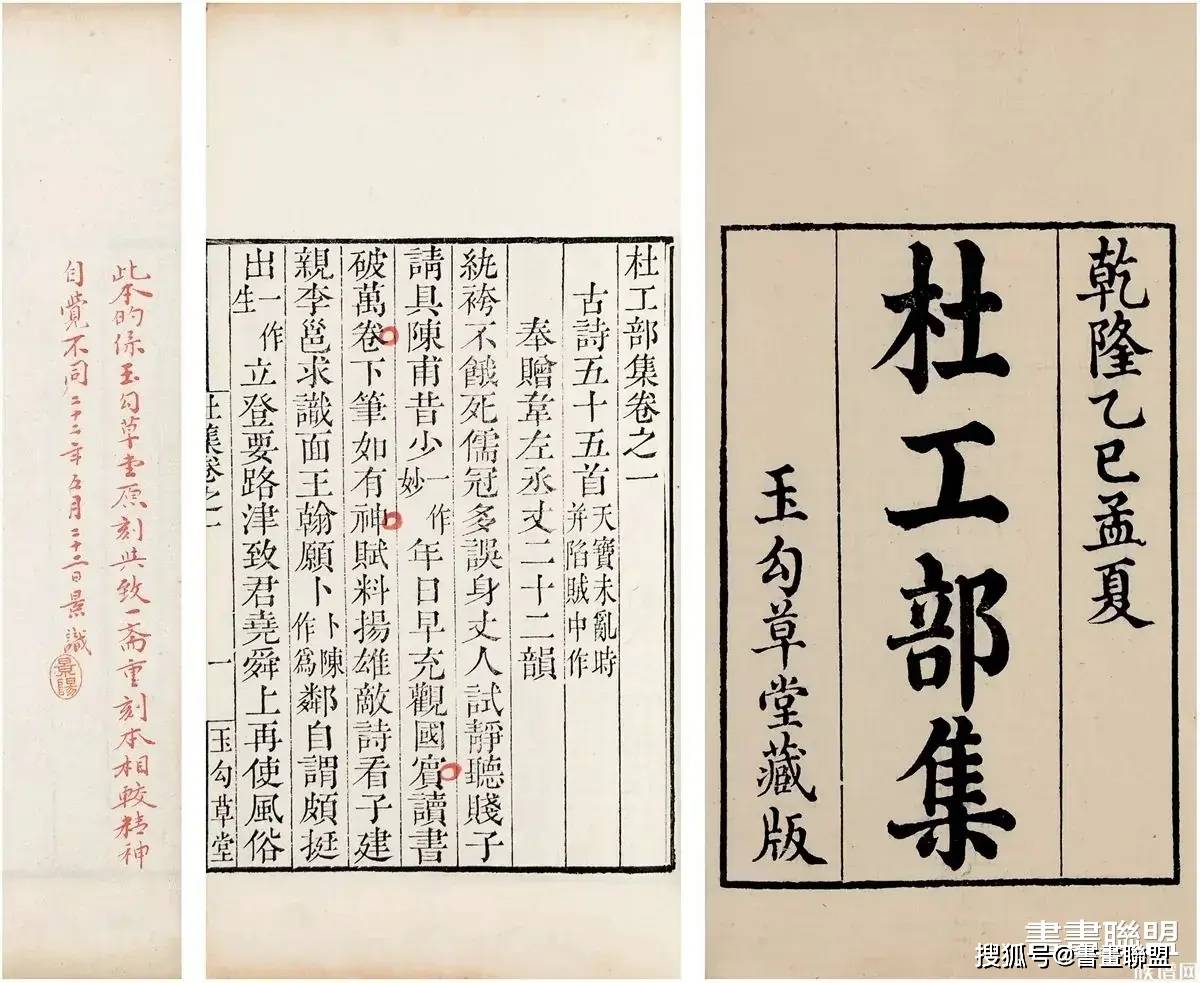 乾隆乙巳孟夏
杜工部集
玉勾草堂藏版
杜工部集卷之一
古詩五十五首天寶未亂時并陷賊中作
奉贈韋左丞丈二十二韻
紈袴不餓死儒冠多誤身丈人試靜聽賤子
請具陳甫昔少一作妙年日早充觀國賓讀書
破萬卷下筆如有神賦料揚雄敵詩看子建
親李邕求識面王翰願卜卜陳作爲鄰自謂頗挺
出一作生立登要路津致君堯舜上再使風俗
杜集卷之一 一 玉勾草堂
此本的係玉勾草堂原刻與致一斋重刻本相較精神
自覺不同二十二年五月二十二日景識
書畫聯盟
搜狐号@書畫聯盟